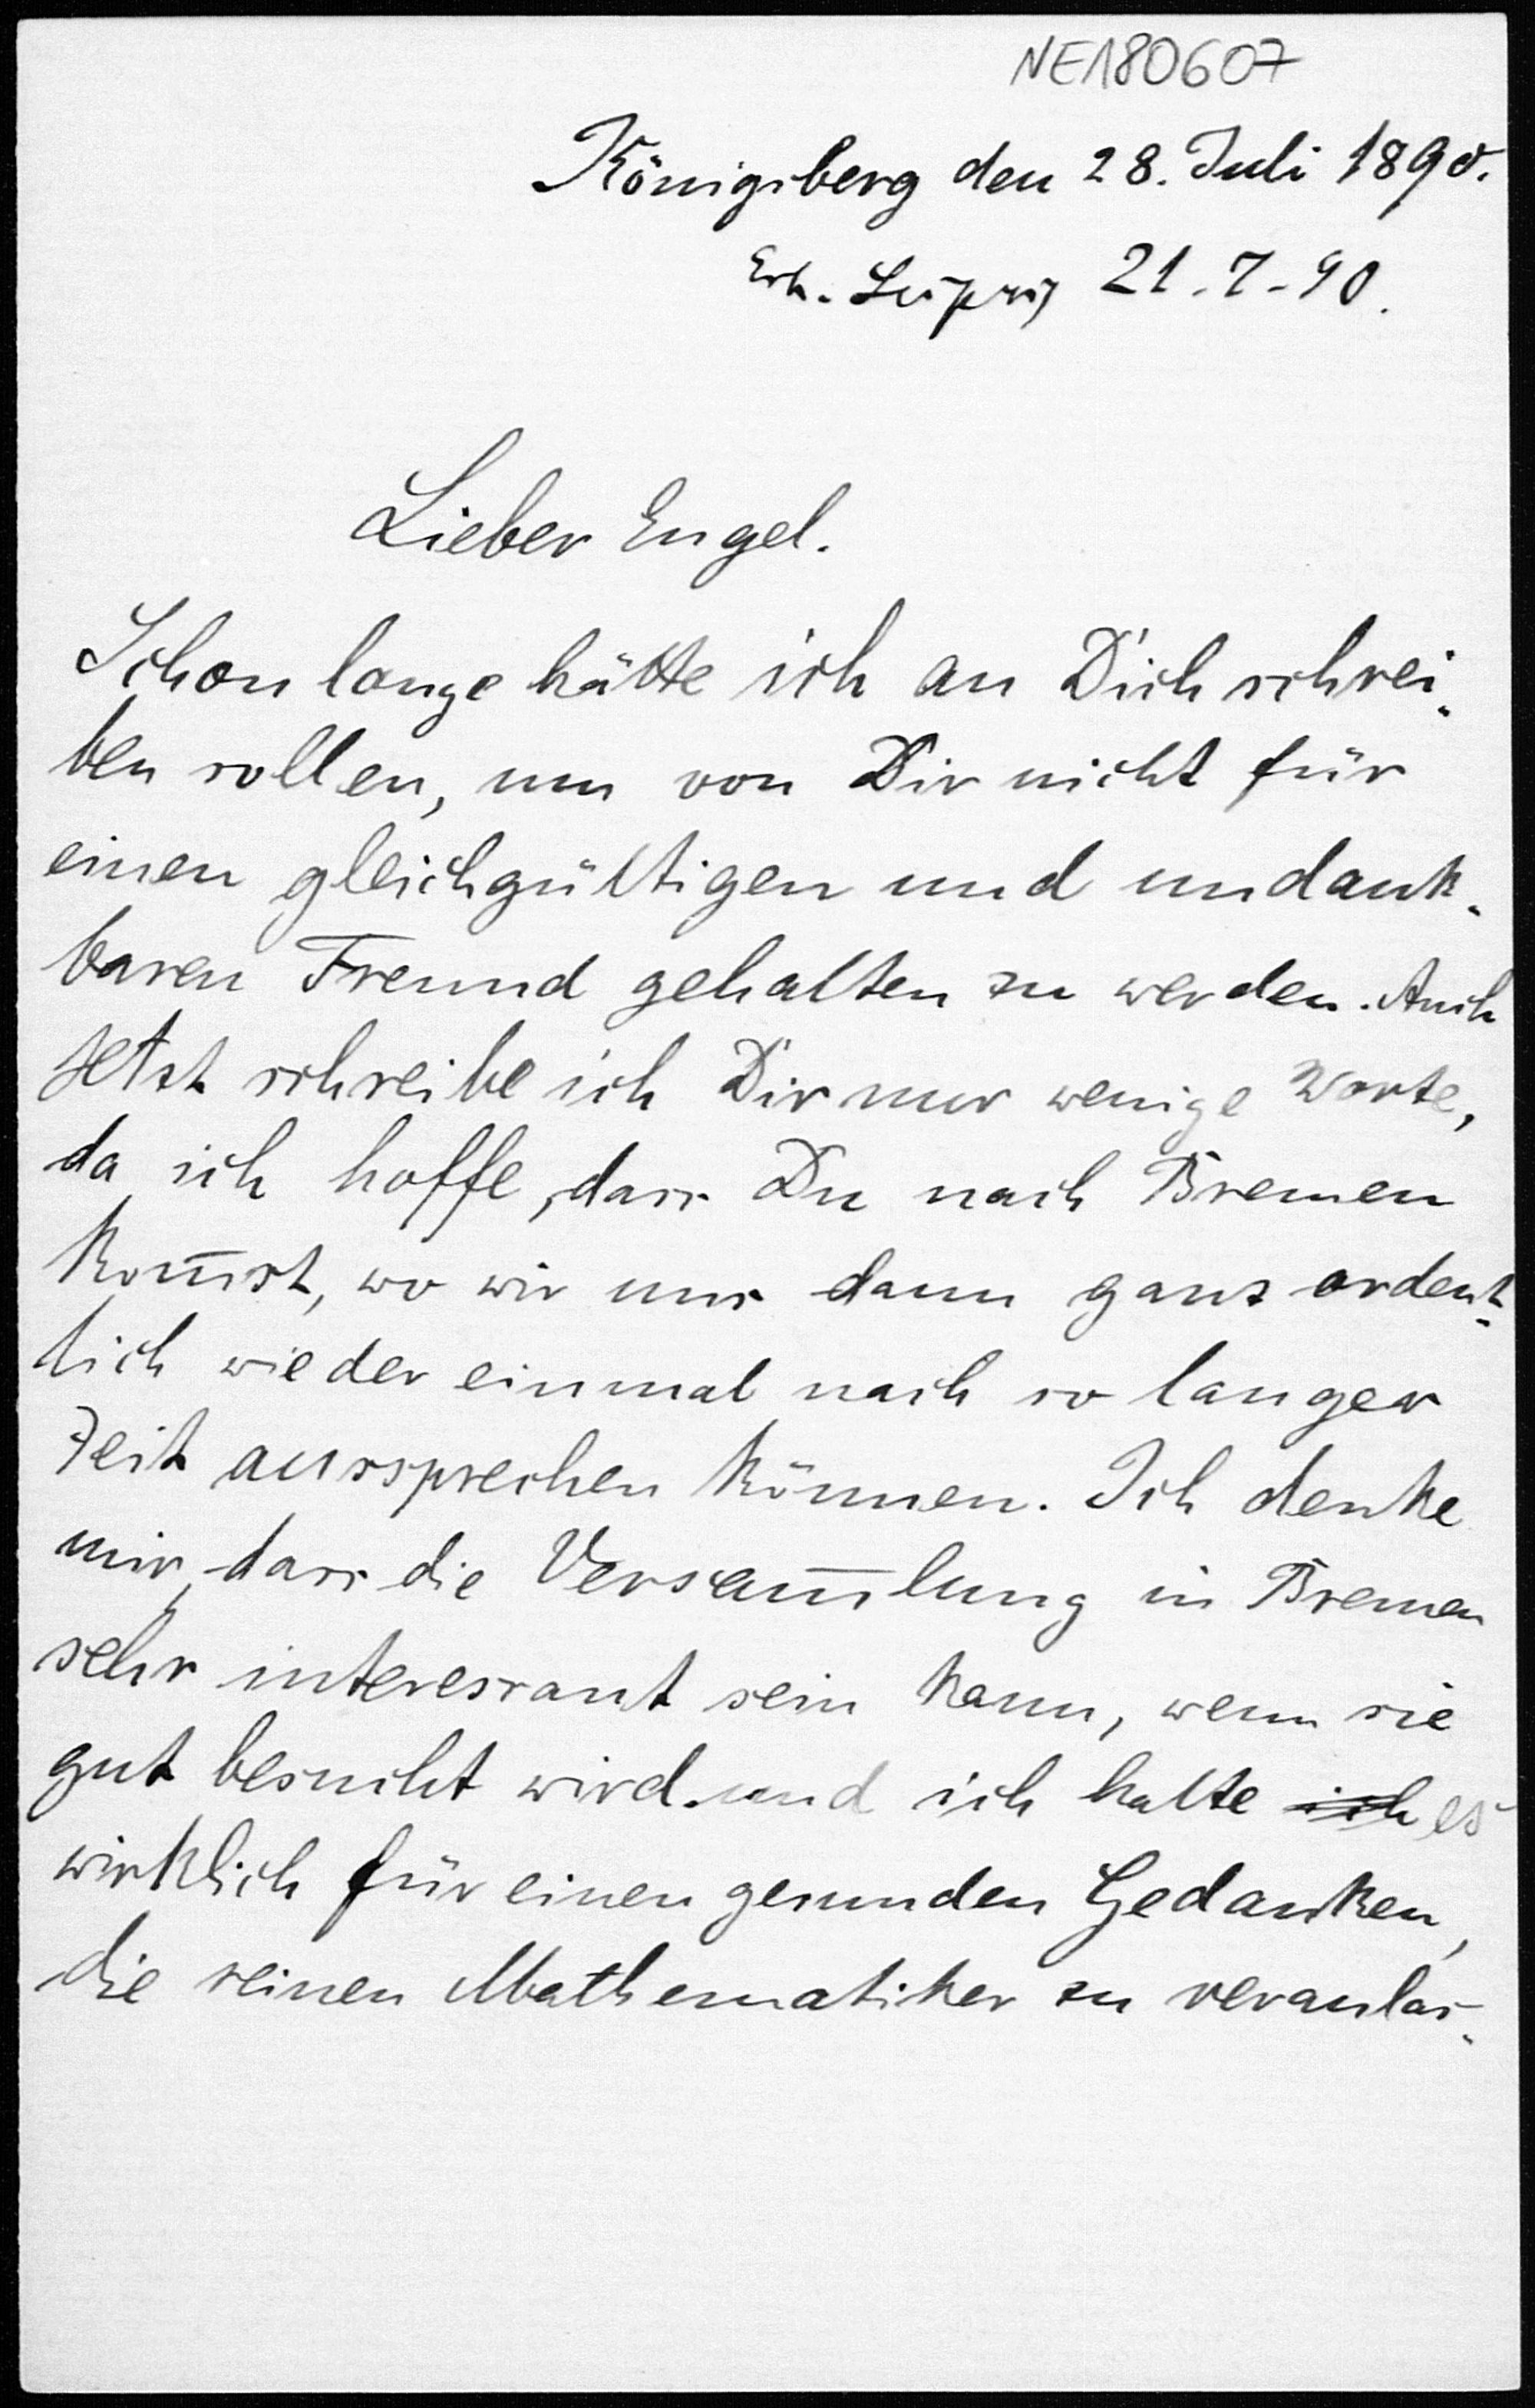 NE180607
Königsberg den 28. Juli 1890.
Erh. Leipzig 21.7.90.
Lieber Engel.
Schon lange hätte ich an Dich schrei-
ben sollen, um von Dir nicht für
einen gleichgültigen und undank-
baren Freund gehalten zu werden. Auch
jetzt schreibe ich Dir nur wenige Worte,
da ich hoffe, dass Du nach Bremen
kom̅st, wo wir uns dann ganz ordent-
lich wieder einmal nach so langer
Zeit aussprechen können. Ich denke
mir, dass die Versam̅lung in Bremen
sehr interessant sein kann, wenn sie
gut besucht wird und ich halte ich es
wirklich für einen gesunden Gedanken,
die reinen Mathematiker zu veranlas-